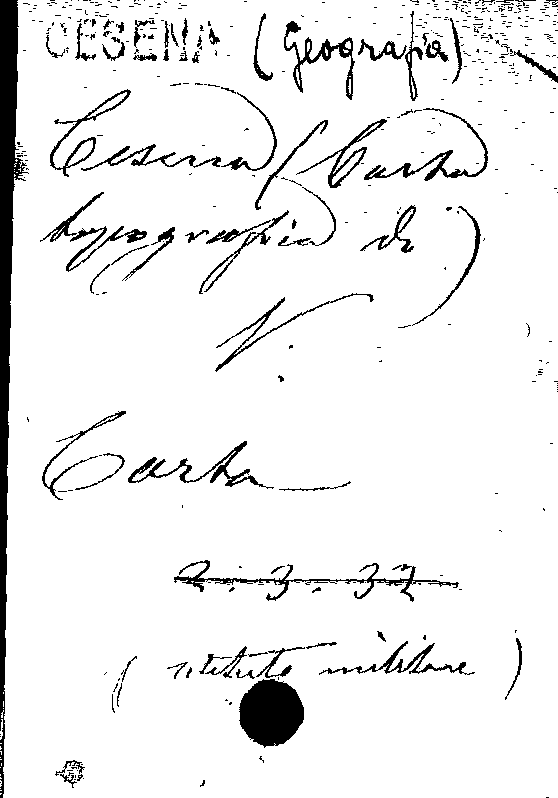 CESENA (Geografia)
Cesena (Carta
topografia di)
V.
Carta
2. 3. 37
(istituto militare)